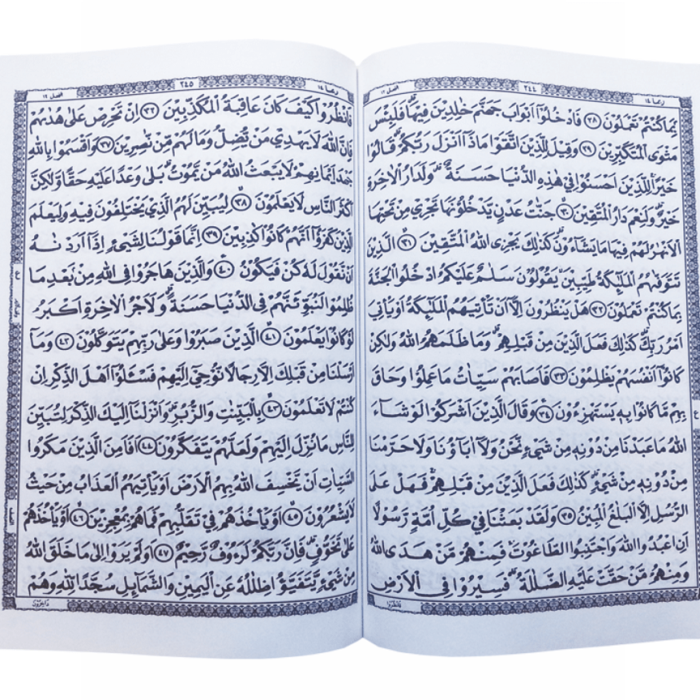 ربما ١٤ ٢٤٤
بِمَا كُنْتُمْ تَعْمَلُوْنَ ٢٨ فَادْخُلُوْٓا اَبْوَابَ جَهَنَّمَ خٰلِدِيْنَ فِيْهَا فَلَبِئْسَ
مَثْوَى الْمُتَكَبِّرِيْنَ ٢٩ وَقِيْلَ لِلَّذِيْنَ اتَّقَوْا مَاذَآ اَنْزَلَ رَبُّكُمْ قَالُوْا
خَيْرًا لِلَّذِيْنَ اَحْسَنُوْا فِيْ هٰذِهِ الدُّنْيَا حَسَنَةٌ وَلَدَارُ الْاٰخِرَةِ
خَيْرٌ وَلَنِعْمَ دَارُ الْمُتَّقِيْنَ ٣٠ جَنّٰتُ عَدْنٍ يَدْخُلُوْنَهَا تَجْرِيْ مِنْ تَحْتِهَا
الْاَنْهٰرُ لَهُمْ فِيْهَا مَا يَشَآءُوْنَ كَذٰلِكَ يَجْزِى اللّٰهُ الْمُتَّقِيْنَ ٣١ الَّذِيْنَ
تَتَوَفّٰىهُمُ الْمَلٰٓئِكَةُ طَيِّبِيْنَ يَقُوْلُوْنَ سَلٰمٌ عَلَيْكُمُ ادْخُلُوا الْجَنَّةَ
بِمَا كُنْتُمْ تَعْمَلُوْنَ ٣٢ هَلْ يَنْظُرُوْنَ اِلَّآ اَنْ تَأْتِيَهُمُ الْمَلٰٓئِكَةُ اَوْ يَأْتِيَ
اَمْرُ رَبِّكَ كَذٰلِكَ فَعَلَ الَّذِيْنَ مِنْ قَبْلِهِمْ وَمَا ظَلَمَهُمُ اللّٰهُ وَلٰكِنْ
كَانُوْٓا اَنْفُسَهُمْ يَظْلِمُوْنَ ٣٣ فَاَصَابَهُمْ سَيِّاٰتُ مَا عَمِلُوْا وَحَاقَ
بِهِمْ مَا كَانُوْا بِهٖ يَسْتَهْزِءُوْنَ ٣٤ وَقَالَ الَّذِيْنَ اَشْرَكُوْا لَوْ شَآءَ
اللّٰهُ مَا عَبَدْنَا مِنْ دُوْنِهٖ مِنْ شَيْءٍ نَحْنُ وَلَآ اٰبَآؤُنَا وَلَا حَرَّمْنَا
مِنْ دُوْنِهٖ مِنْ شَيْءٍ كَذٰلِكَ فَعَلَ الَّذِيْنَ مِنْ قَبْلِهِمْ فَهَلْ عَلَى
الرُّسُلِ اِلَّا الْبَلٰغُ الْمُبِيْنُ ٣٥ وَلَقَدْ بَعَثْنَا فِيْ كُلِّ اُمَّةٍ رَسُوْلًا
اَنِ اعْبُدُوا اللّٰهَ وَاجْتَنِبُوا الطَّاغُوْتَ فَمِنْهُمْ مَنْ هَدَى اللّٰهُ
وَمِنْهُمْ مَنْ حَقَّتْ عَلَيْهِ الضَّلٰلَةُ فَسِيْرُوْا فِى الْاَرْضِ
فَانْظُرُوْا
٢٤٥
فَانْظُرُوْا كَيْفَ كَانَ عَاقِبَةُ الْمُكَذِّبِيْنَ ٣٦ اِنْ تَحْرِصْ عَلٰى هُدٰىهُمْ
فَاِنَّ اللّٰهَ لَا يَهْدِيْ مَنْ يُضِلُّ وَمَا لَهُمْ مِنْ نّٰصِرِيْنَ ٣٧ وَاَقْسَمُوْا بِاللّٰهِ
جَهْدَ اَيْمَانِهِمْ لَا يَبْعَثُ اللّٰهُ مَنْ يَمُوْتُ بَلٰى وَعْدًا عَلَيْهِ حَقًّا وَلٰكِنَّ
اَكْثَرَ النَّاسِ لَا يَعْلَمُوْنَ ٣٨ لِيُبَيِّنَ لَهُمُ الَّذِيْ يَخْتَلِفُوْنَ فِيْهِ وَلِيَعْلَمَ
الَّذِيْنَ كَفَرُوْٓا اَنَّهُمْ كَانُوْا كٰذِبِيْنَ ٣٩ اِنَّمَا قَوْلُنَا لِشَيْءٍ اِذَآ اَرَدْنٰهُ
اَنْ نَقُوْلَ لَهٗ كُنْ فَيَكُوْنُ ٤٠ وَالَّذِيْنَ هَاجَرُوْا فِى اللّٰهِ مِنْ بَعْدِ مَا
ظُلِمُوْا لَنُبَوِّئَنَّهُمْ فِى الدُّنْيَا حَسَنَةً وَلَاَجْرُ الْاٰخِرَةِ اَكْبَرُ
لَوْ كَانُوْا يَعْلَمُوْنَ ٤١ الَّذِيْنَ صَبَرُوْا وَعَلٰى رَبِّهِمْ يَتَوَكَّلُوْنَ ٤٢ وَمَآ
اَرْسَلْنَا مِنْ قَبْلِكَ اِلَّا رِجَالًا نُوْحِيْٓ اِلَيْهِمْ فَسْـَٔلُوْٓا اَهْلَ الذِّكْرِ اِنْ
كُنْتُمْ لَا تَعْلَمُوْنَ ٤٣ بِالْبَيِّنٰتِ وَالزُّبُرِ وَاَنْزَلْنَآ اِلَيْكَ الذِّكْرَ لِتُبَيِّنَ
لِلنَّاسِ مَا نُزِّلَ اِلَيْهِمْ وَلَعَلَّهُمْ يَتَفَكَّرُوْنَ ٤٤ اَفَاَمِنَ الَّذِيْنَ مَكَرُوا
السَّيِّاٰتِ اَنْ يَخْسِفَ اللّٰهُ بِهِمُ الْاَرْضَ اَوْ يَأْتِيَهُمُ الْعَذَابُ مِنْ حَيْثُ
لَا يَشْعُرُوْنَ ٤٥ اَوْ يَأْخُذَهُمْ فِيْ تَقَلُّبِهِمْ فَمَا هُمْ بِمُعْجِزِيْنَ ٤٦ اَوْ يَأْخُذَهُمْ
عَلٰى تَخَوُّفٍ فَاِنَّ رَبَّكُمْ لَرَءُوْفٌ رَحِيْمٌ ٤٧ اَوَلَمْ يَرَوْا اِلٰى مَا خَلَقَ اللّٰهُ
مِنْ شَيْءٍ يَتَفَيَّؤُا ظِلٰلُهٗ عَنِ الْيَمِيْنِ وَالشَّمَآئِلِ سُجَّدًا لِلّٰهِ وَهُمْ
دَاخِرُوْنَ